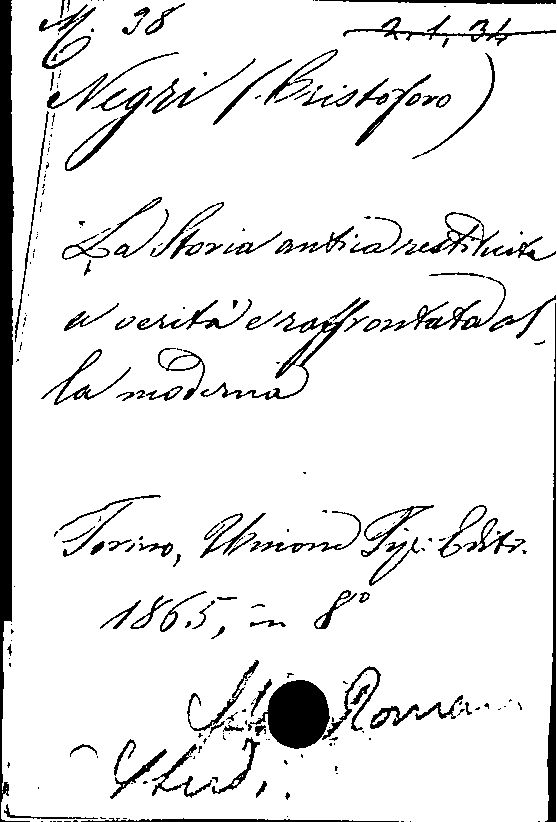 M. 38 2.1,34
Negri (Cristoforo)
La Storia antica restituita
a verità e raffrontata al-
la moderna
Torino, Unione Tip. Editr.
1865, in 8°
Romana